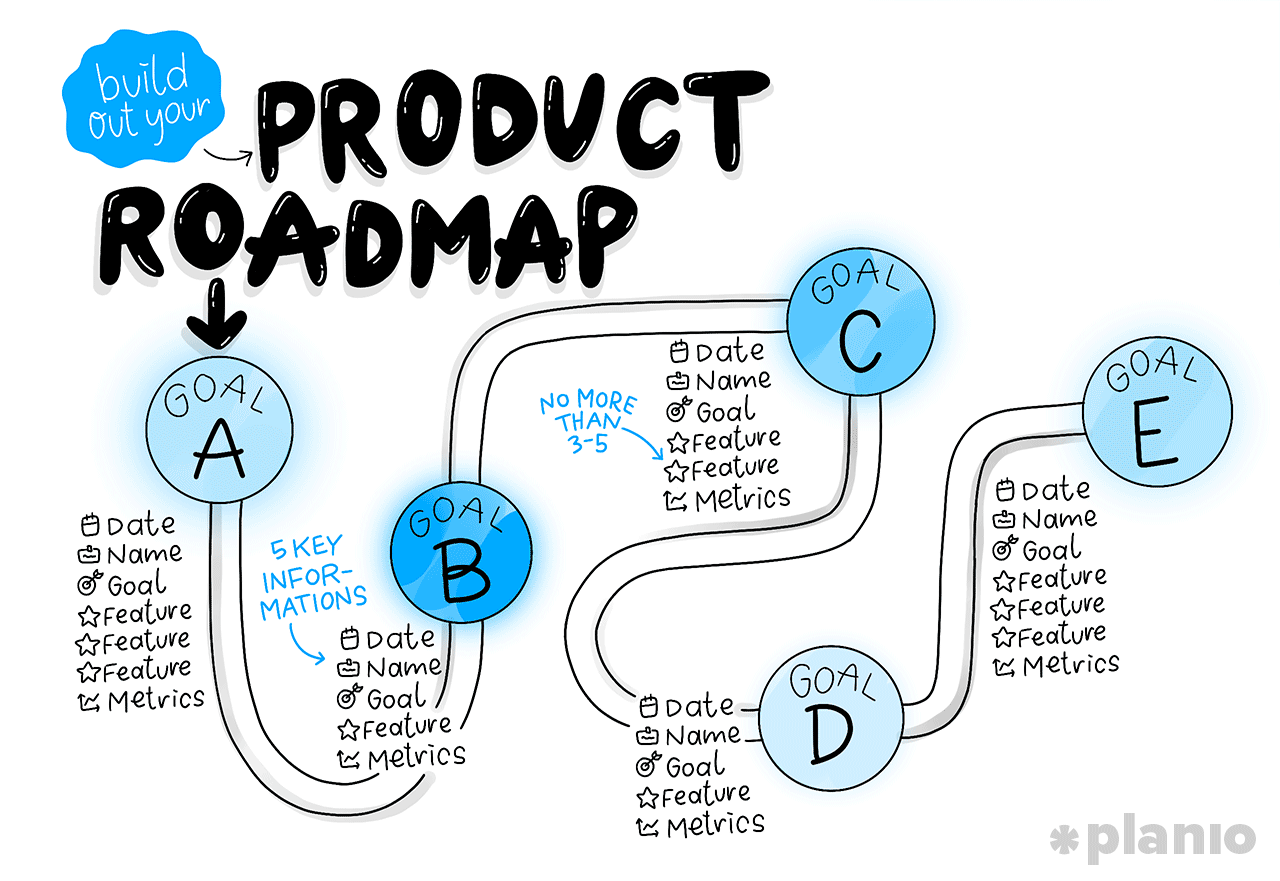 build
out your
PRODUCT
ROADMAP
GOAL
A
Date
Name
Goal
Feature
Feature
Feature
Metrics
5 KEY
INFOR-
MATIONS
GOAL
B
Date
Name
Goal
Feature
Metrics
GOAL
C
NO MORE
THAN
3-5
Date
Name
Goal
Feature
Feature
Metrics
GOAL
D
Date
Name
Goal
Feature
Metrics
GOAL
E
Date
Name
Goal
Feature
Feature
Feature
Metrics
planio